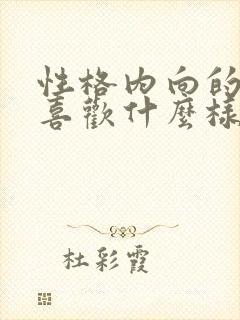 性格內向的
喜歡什麼樣
杜彩霞